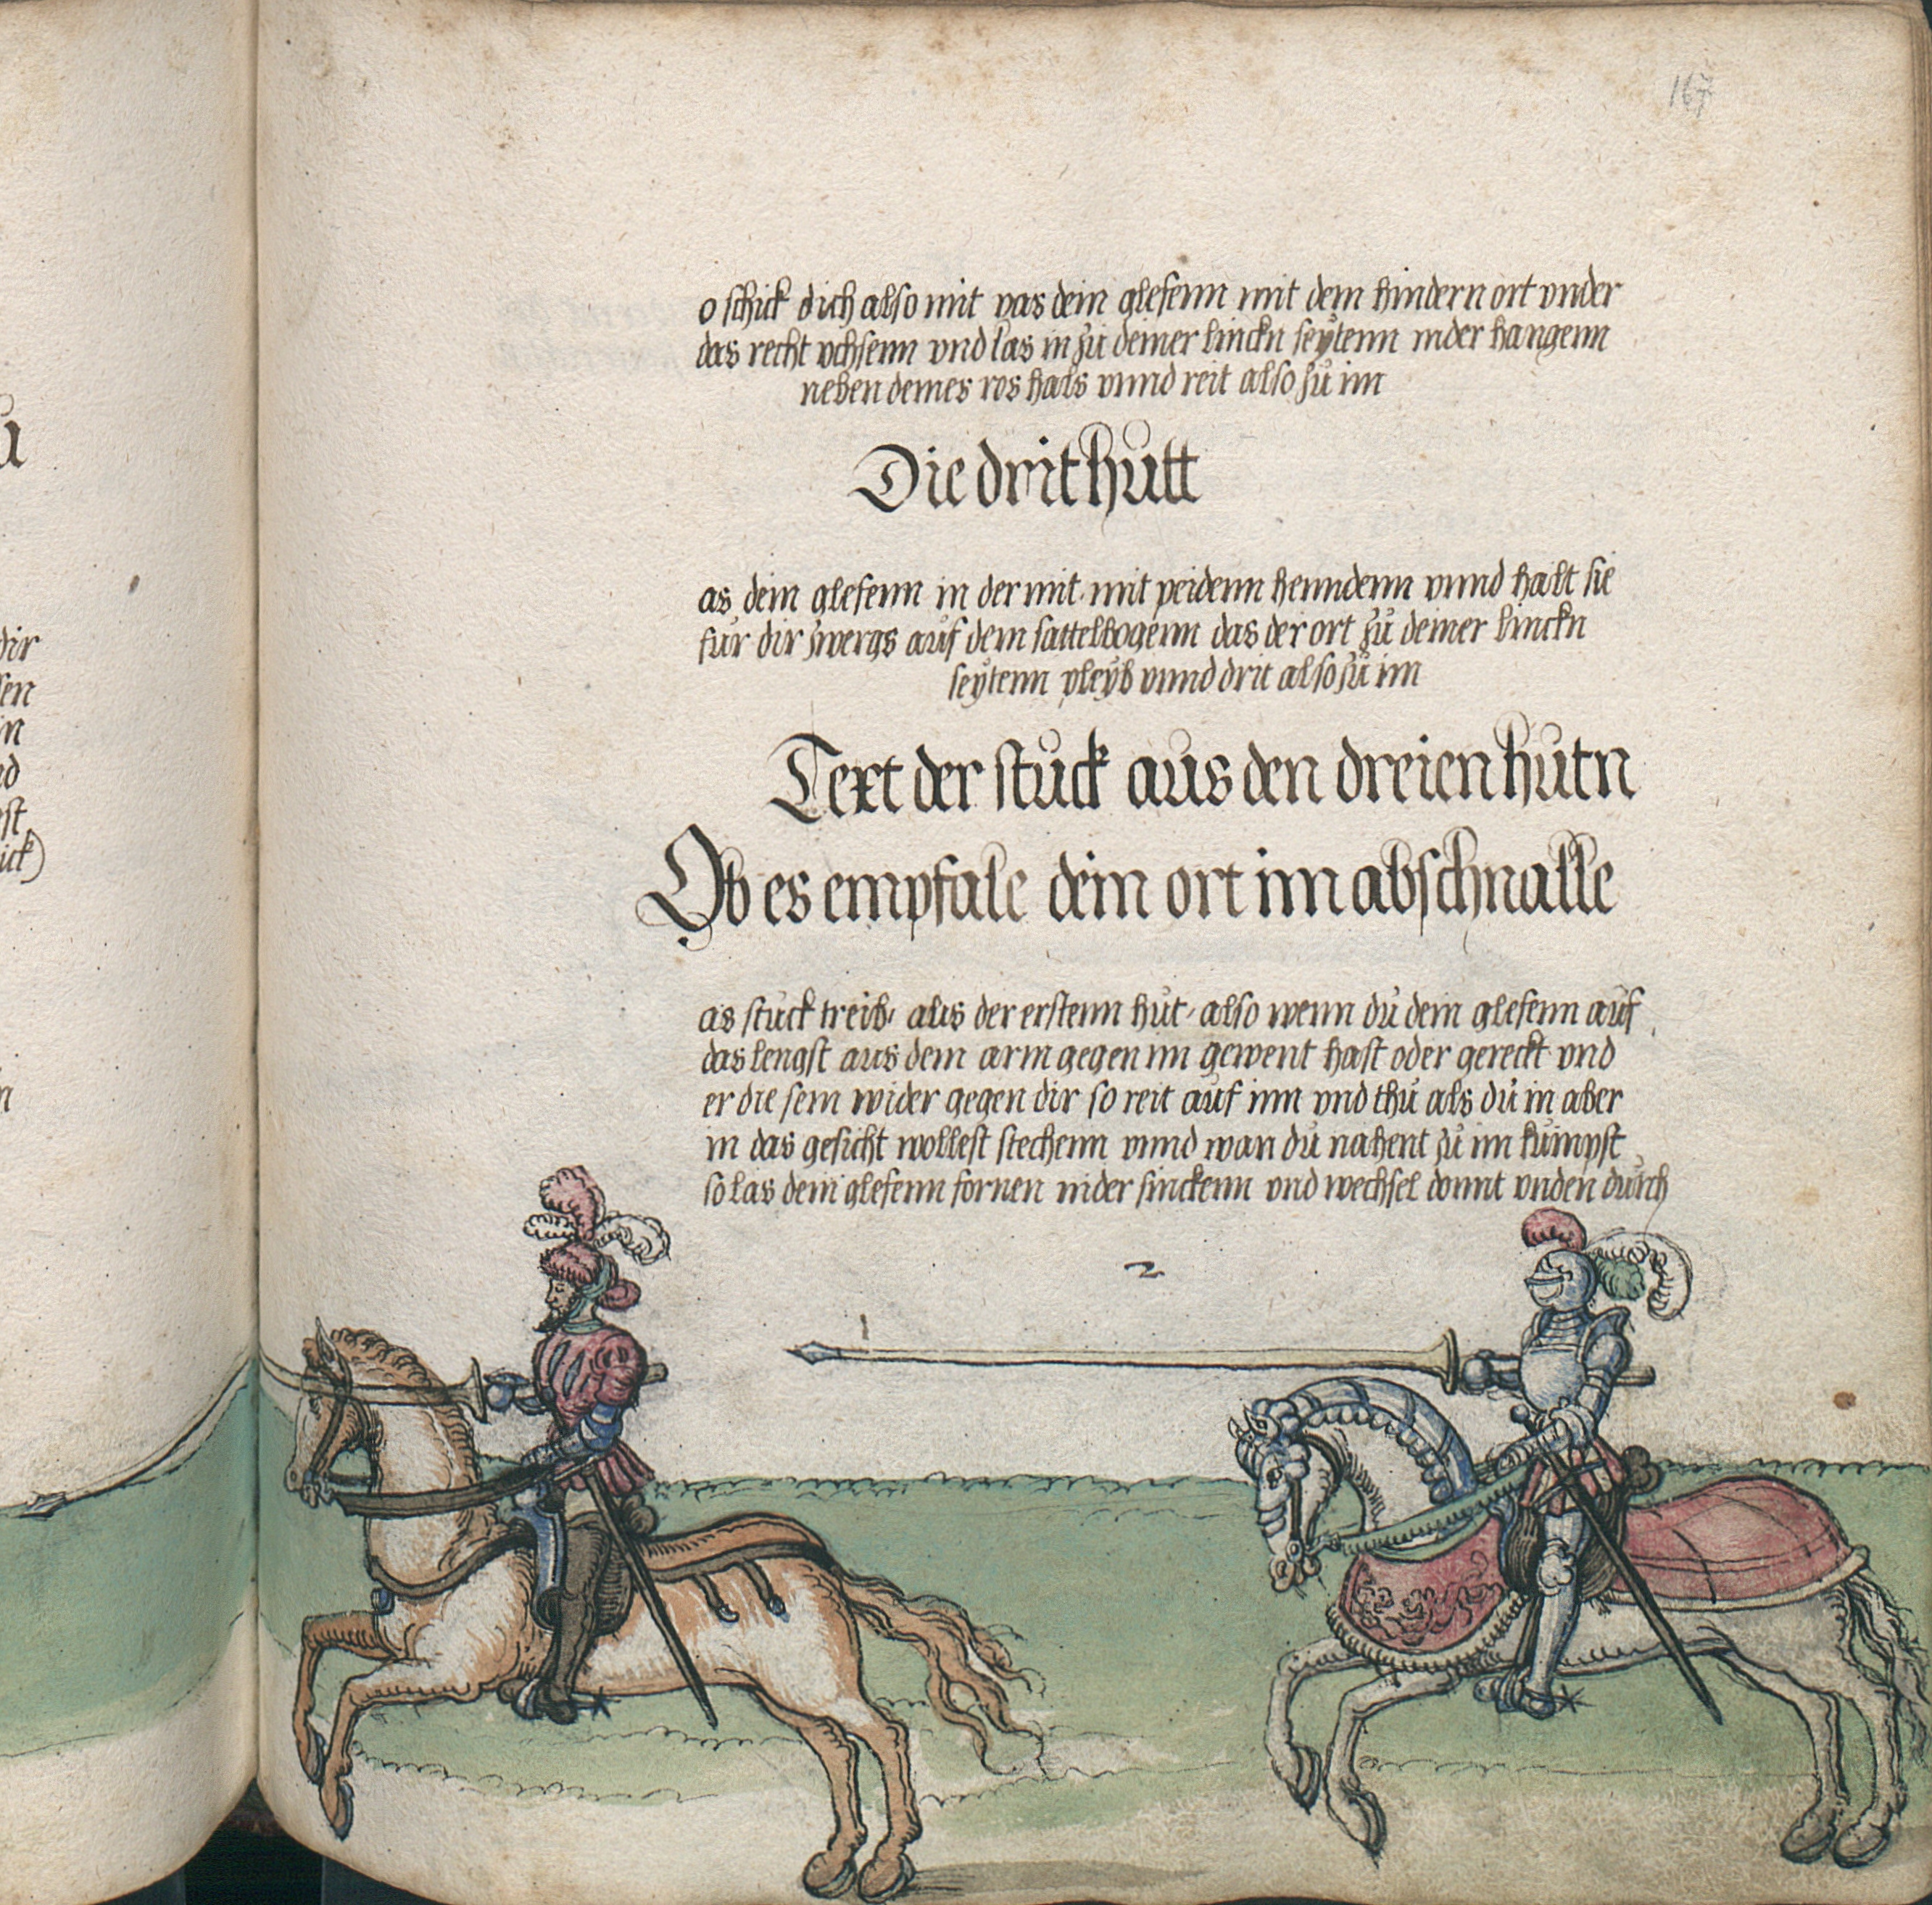 ů
dir
sen
in
nd
est
ick)
n
167
o schick dich also mit vas dein glefenn mit dem hindern ort vnder
das recht vchsenn vnd las in zů deiner linckn seÿtenn nider hangenn
neben deines ros hals vnnd reit also zů im
Die drit hůtt
as dein glefenn in der mit mit peidenn henndenn vnnd halt sie
fůr dir zwergs aůf dem sattelbogenn das der ort zů deiner linckn
seÿtenn pleÿb vnnd drit also zů im
Text der stůck aůs den dreien hůtn
Ob es empfale dein ort im abschnalle
as stůck treib, aůs der erstenn hůt, also wenn dů dein glefenn aůf
das lengst aus dem arm gegen im gewent hast oder gereckt vnd
er die sein wider gegen dir so reit aůf inn vnd thů als dů in aber
in das gesicht wollest stechenn vnnd wan dů nahent zů im kůmpst
so las dein glefenn fornen nider sinckenn vnd wechsel domit vnden důrch